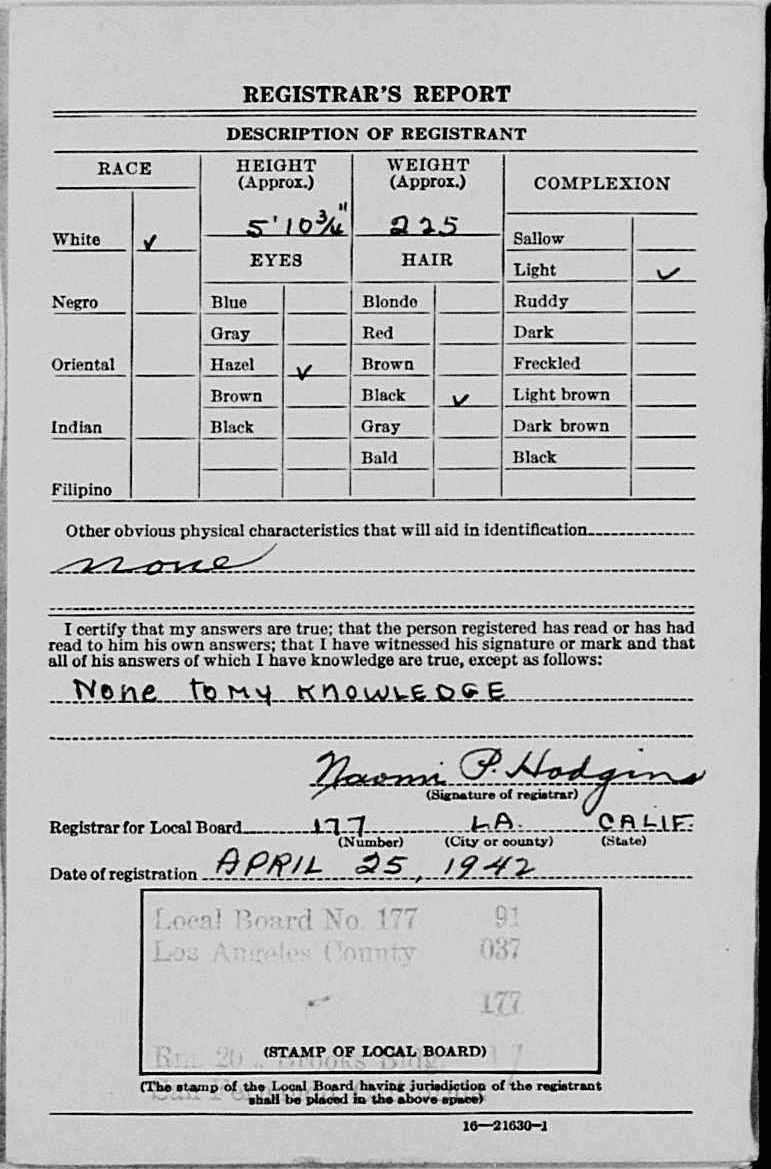 REGISTRAR'S REPORT
DESCRIPTION OF REGISTRANT
RACE HEIGHT (Approx.) WEIGHT (Approx.) COMPLEXION
5' 10 3/4" 225
White ✓ EYES HAIR Sallow
Light ✓
Negro Blue Blonde Ruddy
Gray Red Dark
Oriental Hazel ✓ Brown Freckled
Brown Black ✓ Light brown
Indian Black Gray Dark brown
Bald Black
Filipino
Other obvious physical characteristics that will aid in identification
none
I certify that my answers are true; that the person registered has read or has had
read to him his own answers; that I have witnessed his signature or mark and that
all of his answers of which I have knowledge are true, except as follows:
None to my KNOWLEDGE
Naomi P. Hodgins
(Signature of registrar)
Registrar for Local Board 177 LA. CALIF.
(Number) (City or county) (State)
Date of registration APRIL 25, 1942
Local Board No. 177 91
Los Angeles County 037
177
Rm. 20 Brooks Bldg.
(STAMP OF LOCAL BOARD)
(The stamp of the Local Board having jurisdiction of the registrant
shall be placed in the above space)
16—21630-1